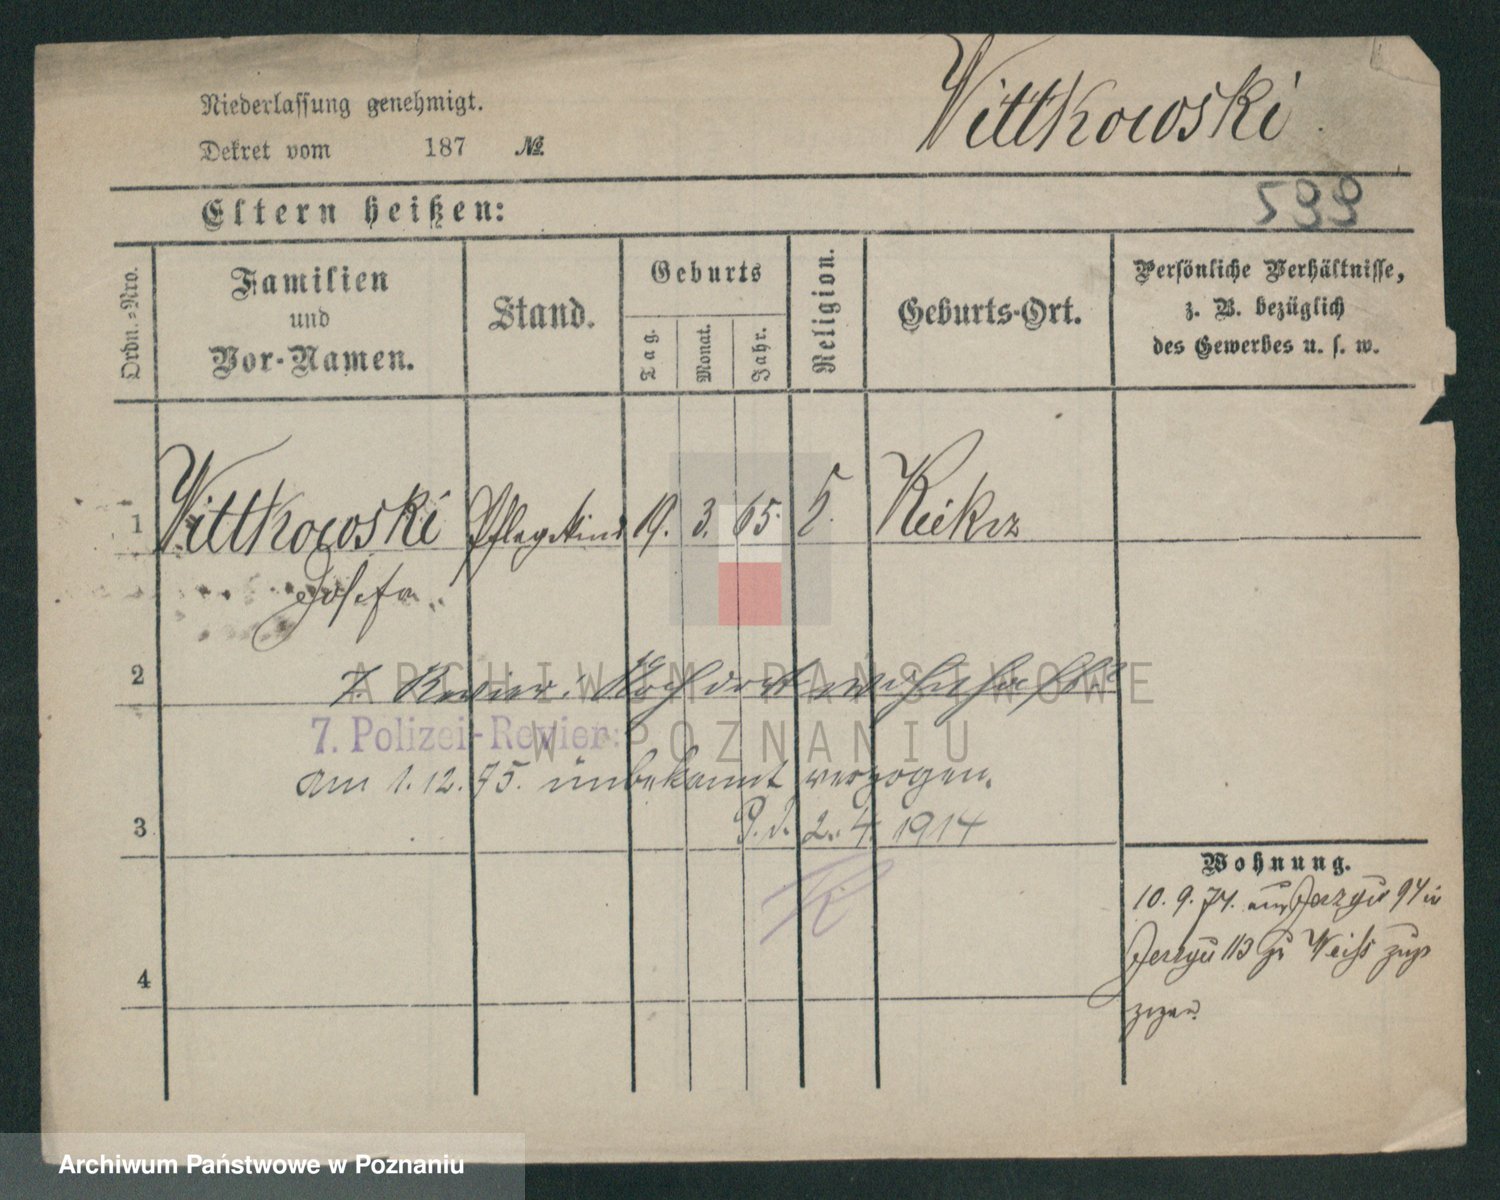 Niederlassung genehmigt.
Dekret vom 187 №
Wittkowski.
599
Eltern heißen:
Ordn.-Nro.
Familien
und
Vor-Namen.
Stand.
Geburts
Tag.
Monat.
Jahr.
Religion.
Geburts-Ort.
Persönliche Verhältnisse,
z. B. bezüglich
des Gewerbes u. s. w.
1 Wittkowski Pflegekind 19. 3. 65.
Josefa
2
7. Revier: Noch dort
ARCHIWUM PAŃSTWOWE
W POZNANIU
7. Polizei-Revier:
am 1.12.75. unbekannt verzogen.
P. d. 2. 4. 1914
3
Wohnung.
10. 9. 74. aus Jerzyce 94 in
Jerzyce 113 zu Weiss zuge
zogen.
4
Archiwum Państwowe w Poznaniu